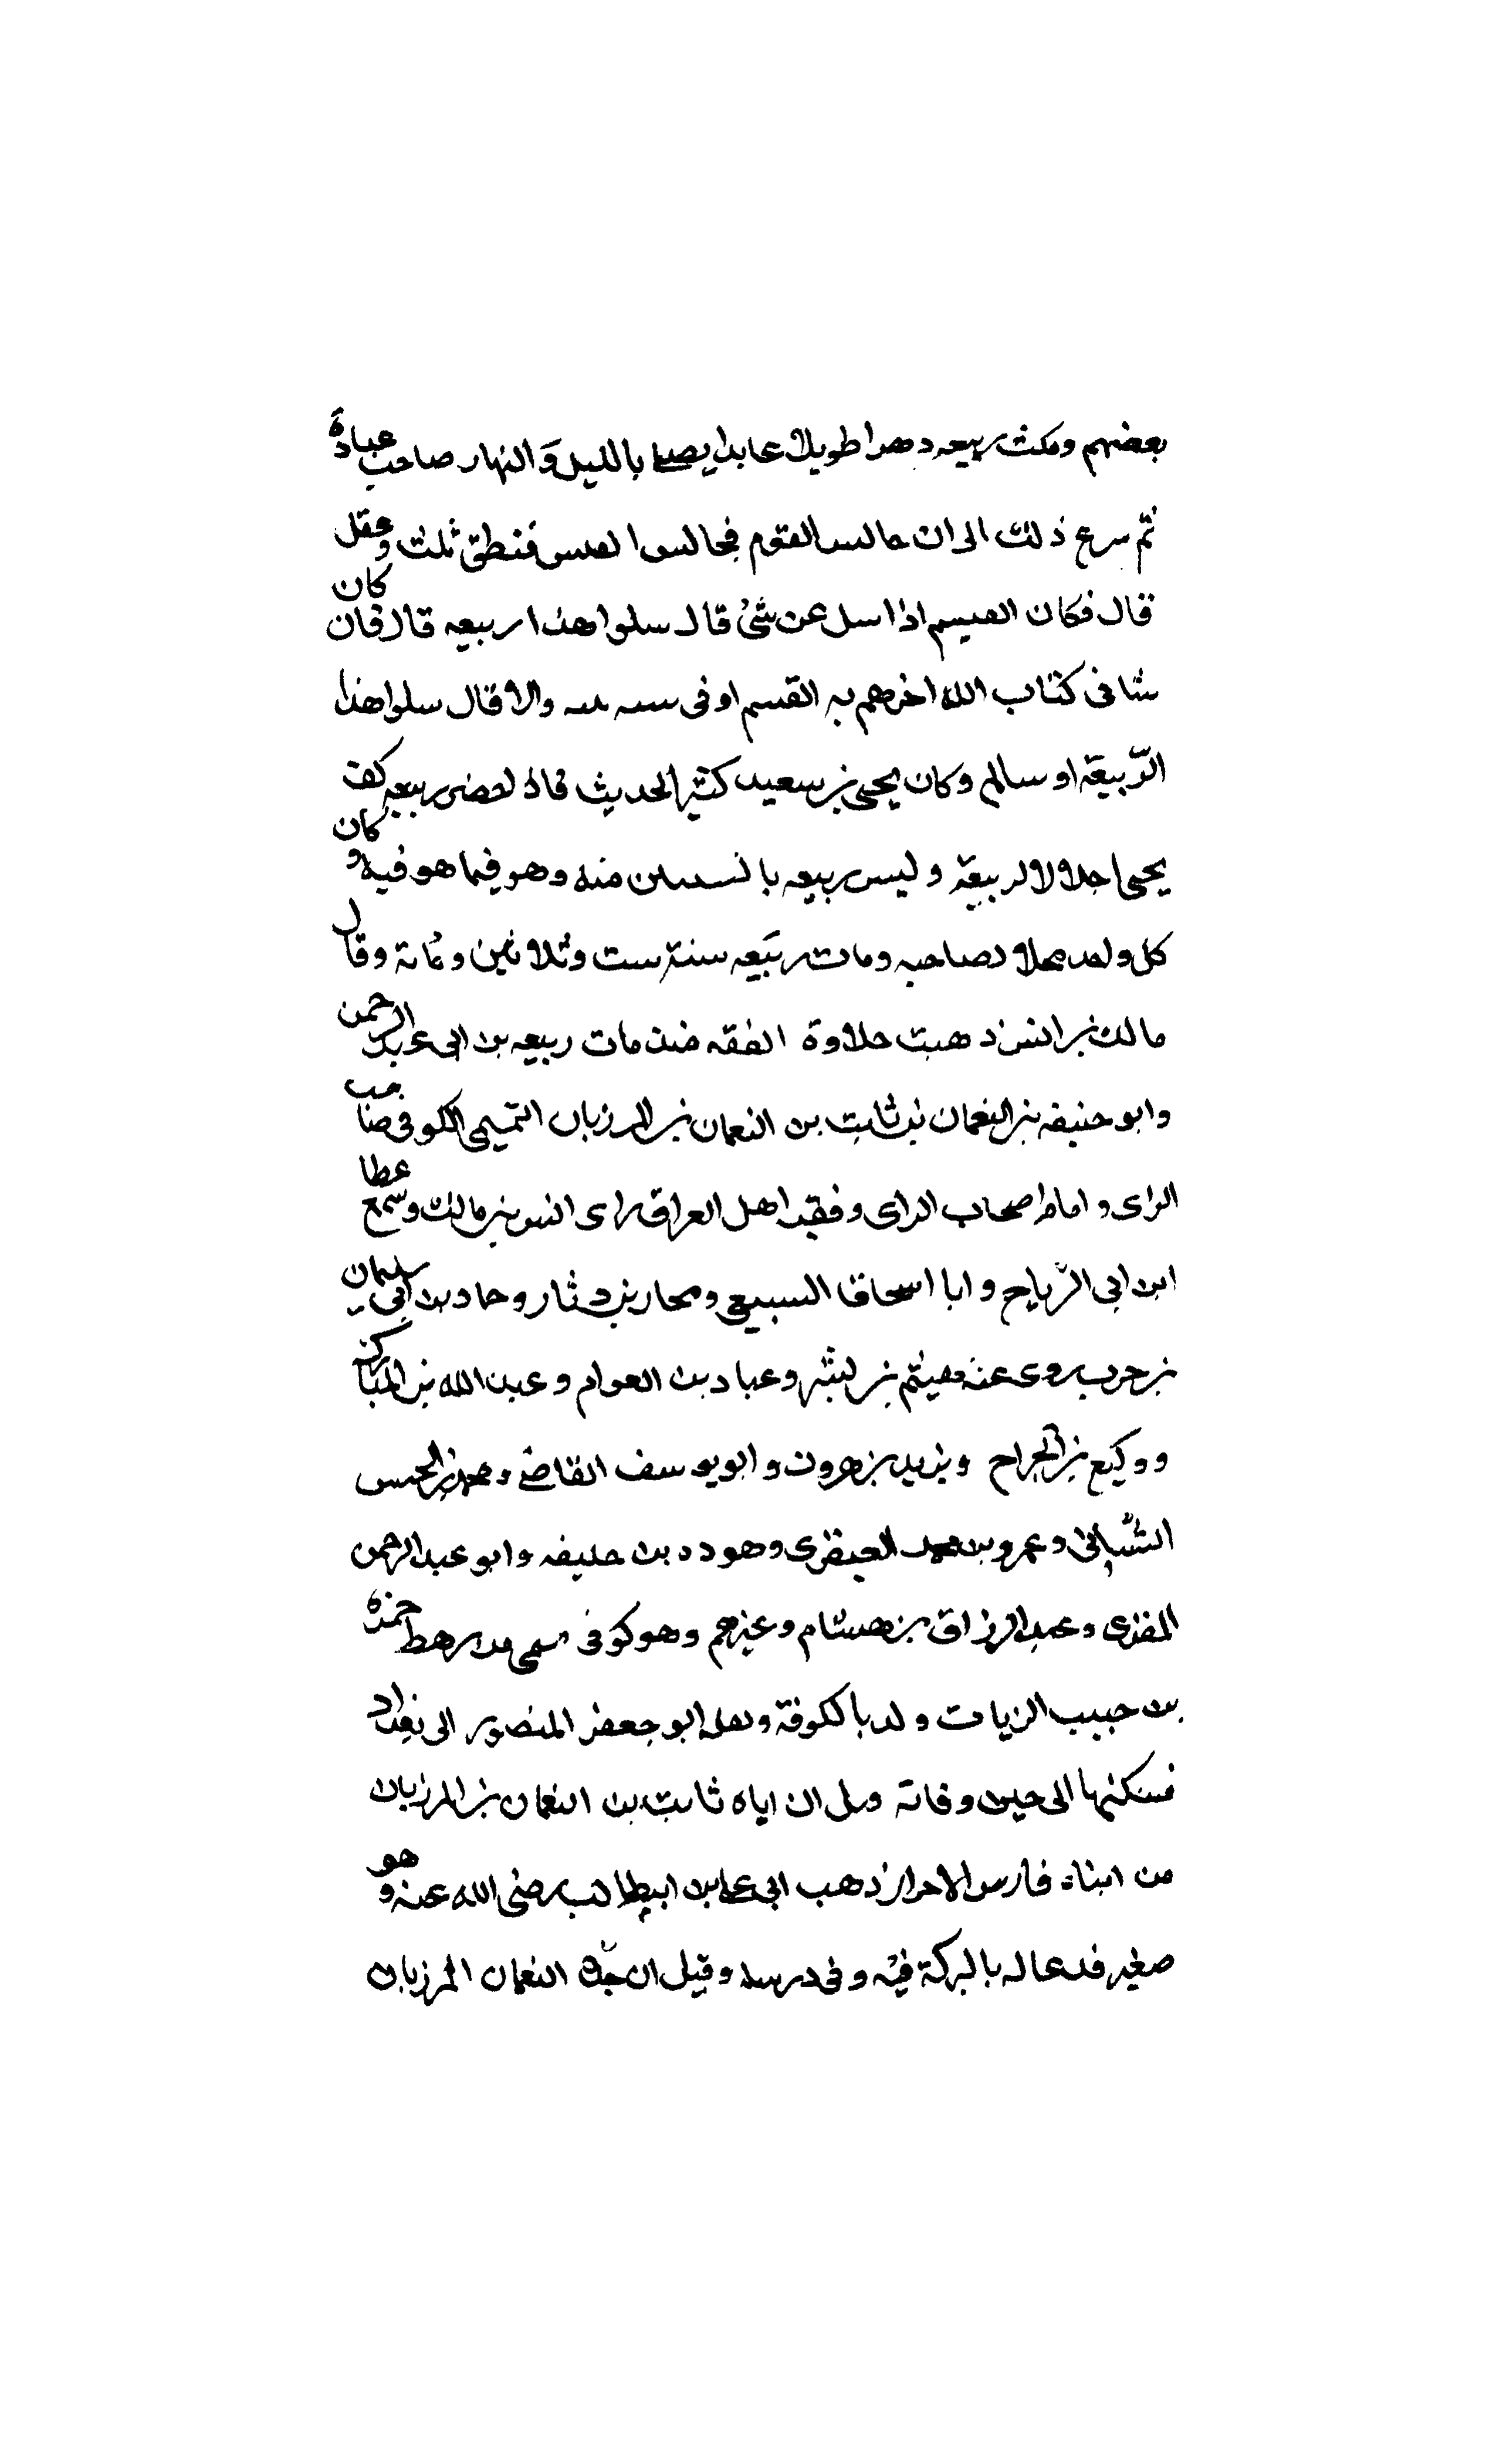 بعضهم ومكث ربيعه دهرا طويلا عابدا يصلى بالليل وَالنهار صاحب عبادةً
ثم سرع ذلك الى ان جالس القوم فجالس القسم فنطق ثلث وعقل
قال فكان القسم اذا سل عن شئ قال سلوا هذا ربيعه قال فان كان
شا فى كتاب الله اخرهم به القسم او فى سنه والا قال سلوا هذا
الربيعة او سالم وكان يحيى بن سعيد كثير الحديث فاذا حضر ربيعه كف
يحيى اجلالا لربيعة وليس ربيعه باسن منه وهو فيما هو فيه وكان
كل واحد مجلا لصاحبه ومات ربيعه سنة ست وثلاثين ومائة وقال
مالك بن انس ذهبت حلاوة الفقه منذ مات ربيعه بن ابى عبد الرحمن
وابو حنيفه بن النعمان بن ثابت بن النعمان بن المرزبان التميمى الكوفى صاحب
الراى وامام اصحاب الراى وفقيه اهل العراق راى انس بن مالك وسمع عطا
ابن ابى الرباح وابا اسحاق السبيعى ومحارب بن دثار وحماد بن ابى سليمان
بن حرب روى عنه هيثم بن بشير وعباد بن العوام وعبد الله بن المبارك
ووكيع بن الجراح ويزيد بن هرون وابو يوسف القاضى ومحمد بن الحسن
الشيبانى وعمرو بن محمد العنقزى وهوده بن خليفه وابو عبد الرحمن
المقرى وعبد الرزاق بن هشام وغيرهم وهو كوفى تيمى من رهط حمزة
بن حبيب الزيات ولد بالكوفة ونقله ابو جعفر المنصور الى بغداد
فسكنها الى حين وفاته وقيل ان اباه ثابت بن النعمان بن المرزبان
من ابناء فارس الاحرار ذهب ابى على بن ابيطالب رضى الله عنه وهو
صغير فدعا له بالبركة فيه وفى درسه وقيل ان جده النعمان المرزبان